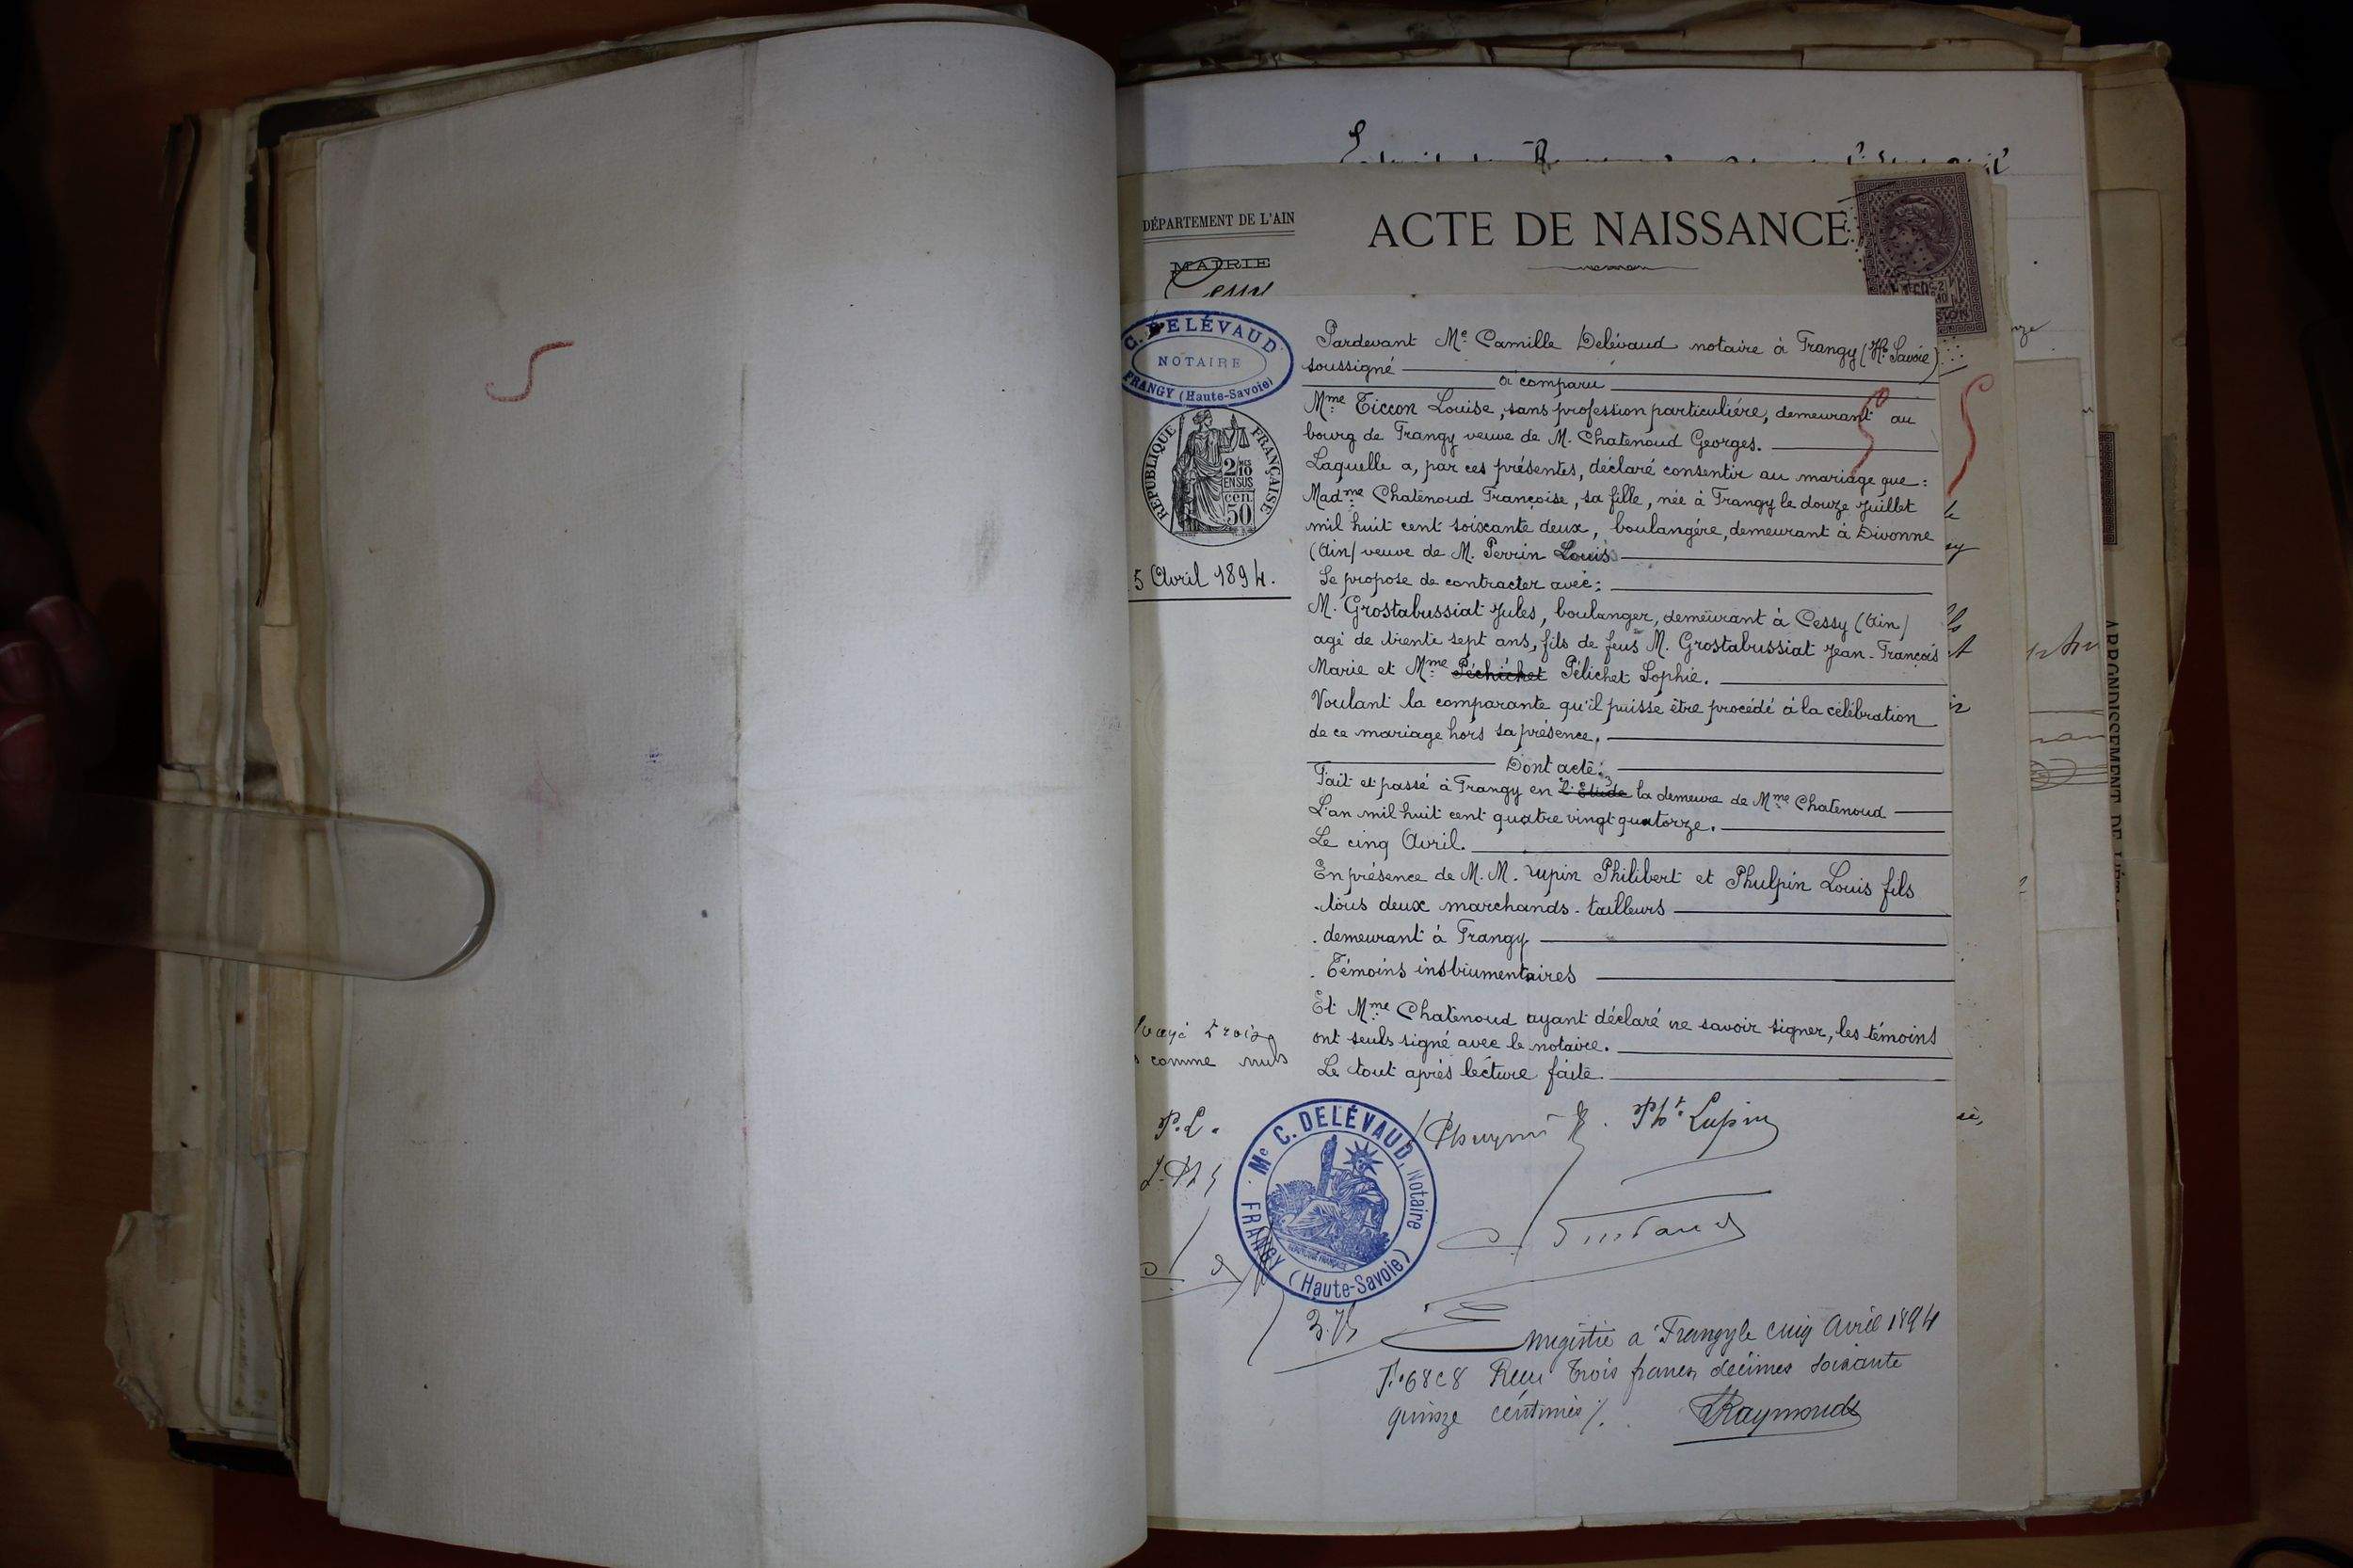 DÉPARTEMENT DE L'AIN
ACTE DE NAISSANCE
MAIRIE
Cessy
C. DELÉVAUD
NOTAIRE
FRANGY (Haute-Savoie)
RÉPUBLIQUE FRANÇAISE
2/10
EN SUS
50 cen
5 Avril 1894.
Pardevant Me Camille Delévaud notaire à Frangy (Hte Savoie)
soussigné
a comparu
Mme Ticcon Louise, sans profession particulière, demeurant au
bourg de Frangy veuve de M. Chatenoud Georges.
Laquelle a, par ces présentes, déclaré consentir au mariage que :
Madme Chatenoud Françoise, sa fille, née à Frangy le douze Juillet
mil huit cent soixante deux, boulangère, demeurant à Divonne
(Ain) veuve de M. Perrin Louis
Se propose de contracter avec :
M. Grostabussiat Jules, boulanger, demeurant à Cessy (Ain)
agé de trente sept ans, fils de feus M. Grostabussiat Jean-François
Marie et Mme Péchichet Pélichet Sophie.
Voulant la comparante qu'il puisse être procédé à la célébration
de ce mariage hors sa présence.
Dont acte :
Fait et passé à Frangy en l'Etude la demeure de Mme Chatenoud
L'an mil huit cent quatre vingt quatorze.
Le cinq Avril.
En présence de M. M. Lupin Philibert et Phulpin Louis fils
tous deux marchands-tailleurs
demeurant à Frangy
Témoins instrumentaires
Et Mme Chatenoud ayant déclaré ne savoir signer, les témoins
ont seuls signé avec le notaire.
Le tout après lecture faite.
trois
comme nuls
P. L.
Pht Lupin
Me C. DELÉVAUD, Notaire
FRANGY (Haute-Savoie)
3.75
Enregistré à Frangy le cinq Avril 1894
Fo 68 C 8 Reçu trois francs décimes soixante
quinze centimes %.
Raymond
ARRONDISSEMENT DE